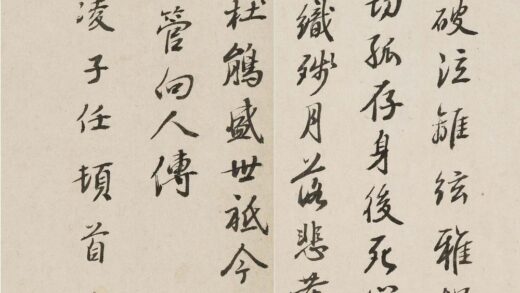 破泣離絃雅
切孤存身後死
織殘月落悲
杜鵑盛世祗今
管向人傳
凌子任頓首